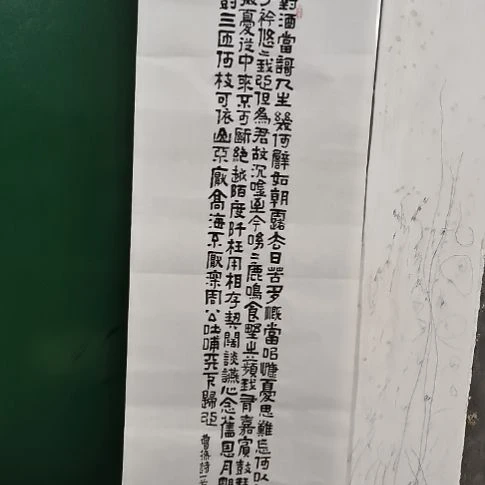 對酒當謌人生幾何譬如朝露去日苦多慨當以慷憂思難忘何以
衿悠〻我心但為君故沉唫至今呦〻鹿鳴食野之蘋我有嘉賓鼓瑟
憂從中來不可斷絕越陌度阡枉用相存契闊談讌心念舊恩月明
三匝何枝可依山不厭高海不厭深周公吐哺天下歸心
曹操詩一